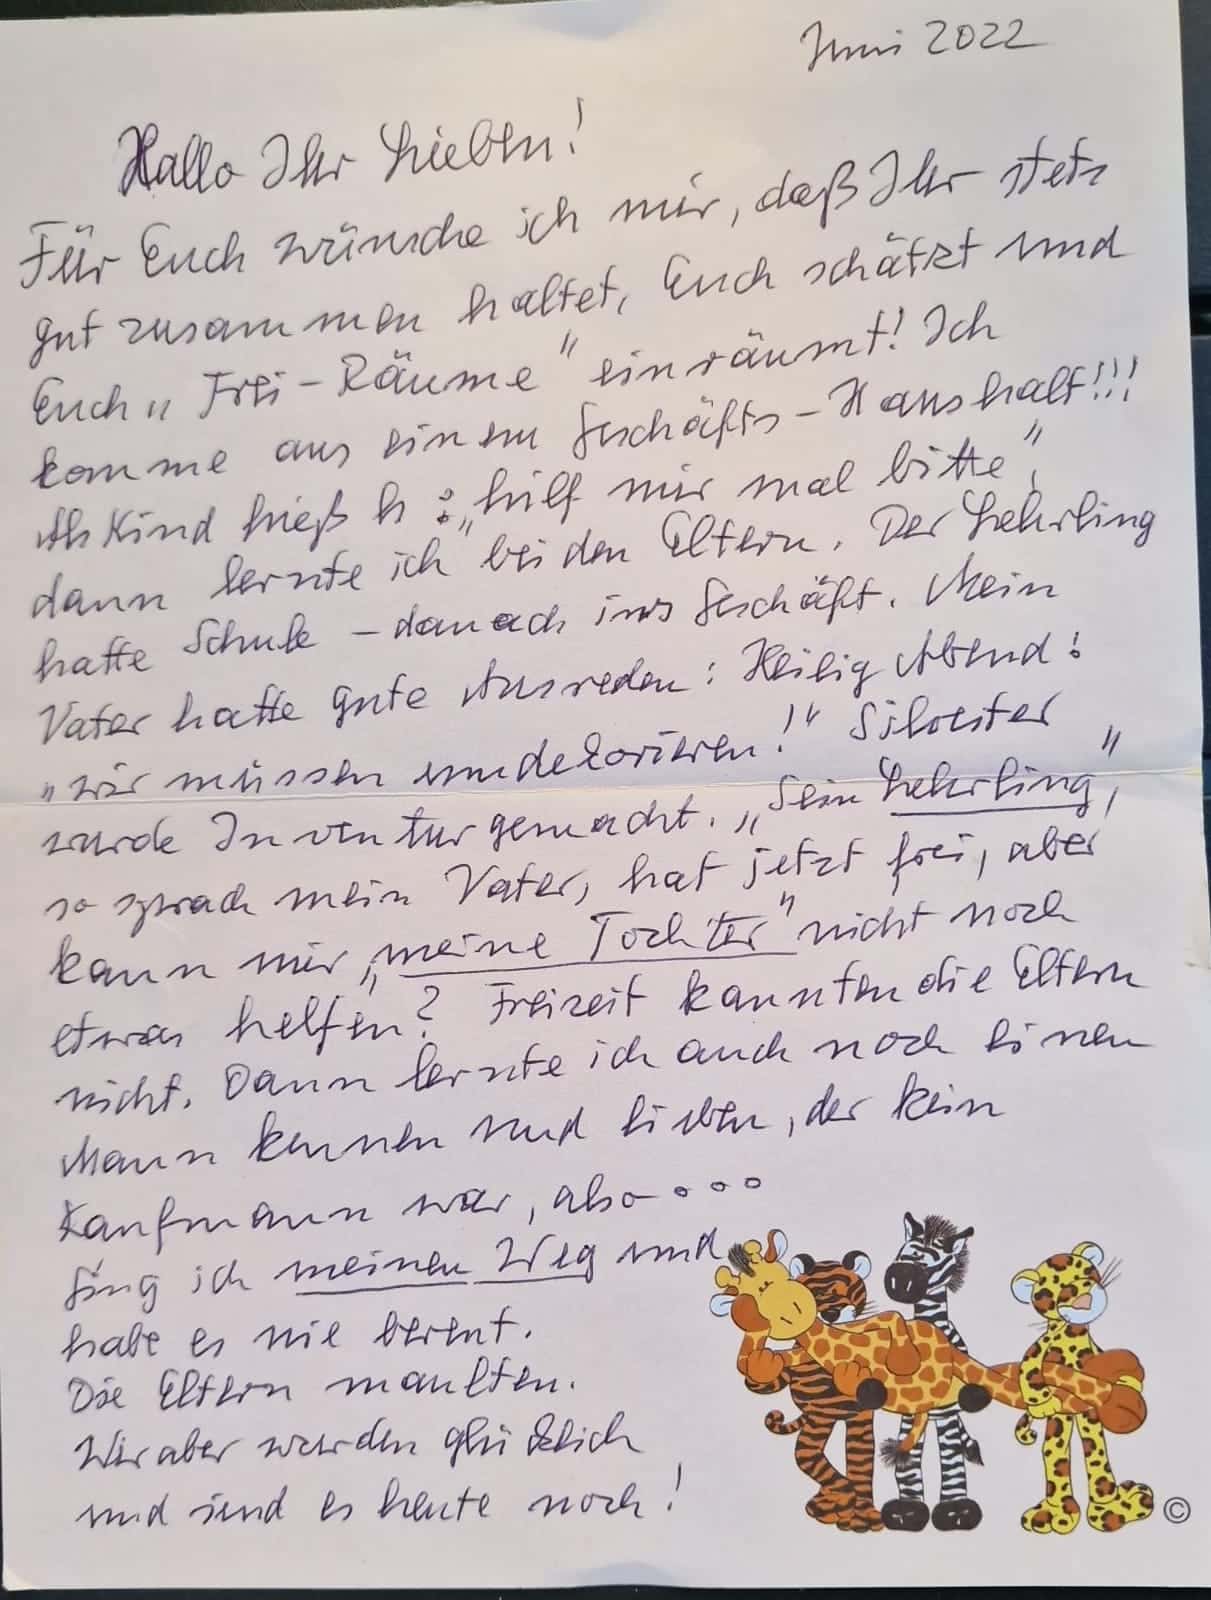 Juni 2022
Hallo Ihr Lieben!
Für Euch wünsche ich mir, daß Ihr stets
gut zusammen haltet, Euch schätzt und
Euch „Frei-Räume" einräumt! Ich
komme aus einem Geschäfts-Haushalt!!!
Als Kind hieß es: „hilf mir mal bitte",
dann lernte ich bei den Eltern. Der Lehrling
hatte Schule - danach ins Geschäft. Mein
Vater hatte gute Ausreden: Heilig Abend:
„wir müssen umdekorieren!" Silvester
wurde Inventur gemacht. „Sein Lehrling",
so sprach mein Vater, hat jetzt frei, aber
kann mir „meine Tochter" nicht noch
etwas helfen? Freizeit kannten die Eltern
nicht. Dann lernte ich auch noch einen
Mann kennen und lieben, der kein
Kaufmann war, also....
ging ich meinen Weg und
habe es nie bereut.
Die Eltern maulten.
Wir aber wurden glücklich
und sind es heute noch!
©